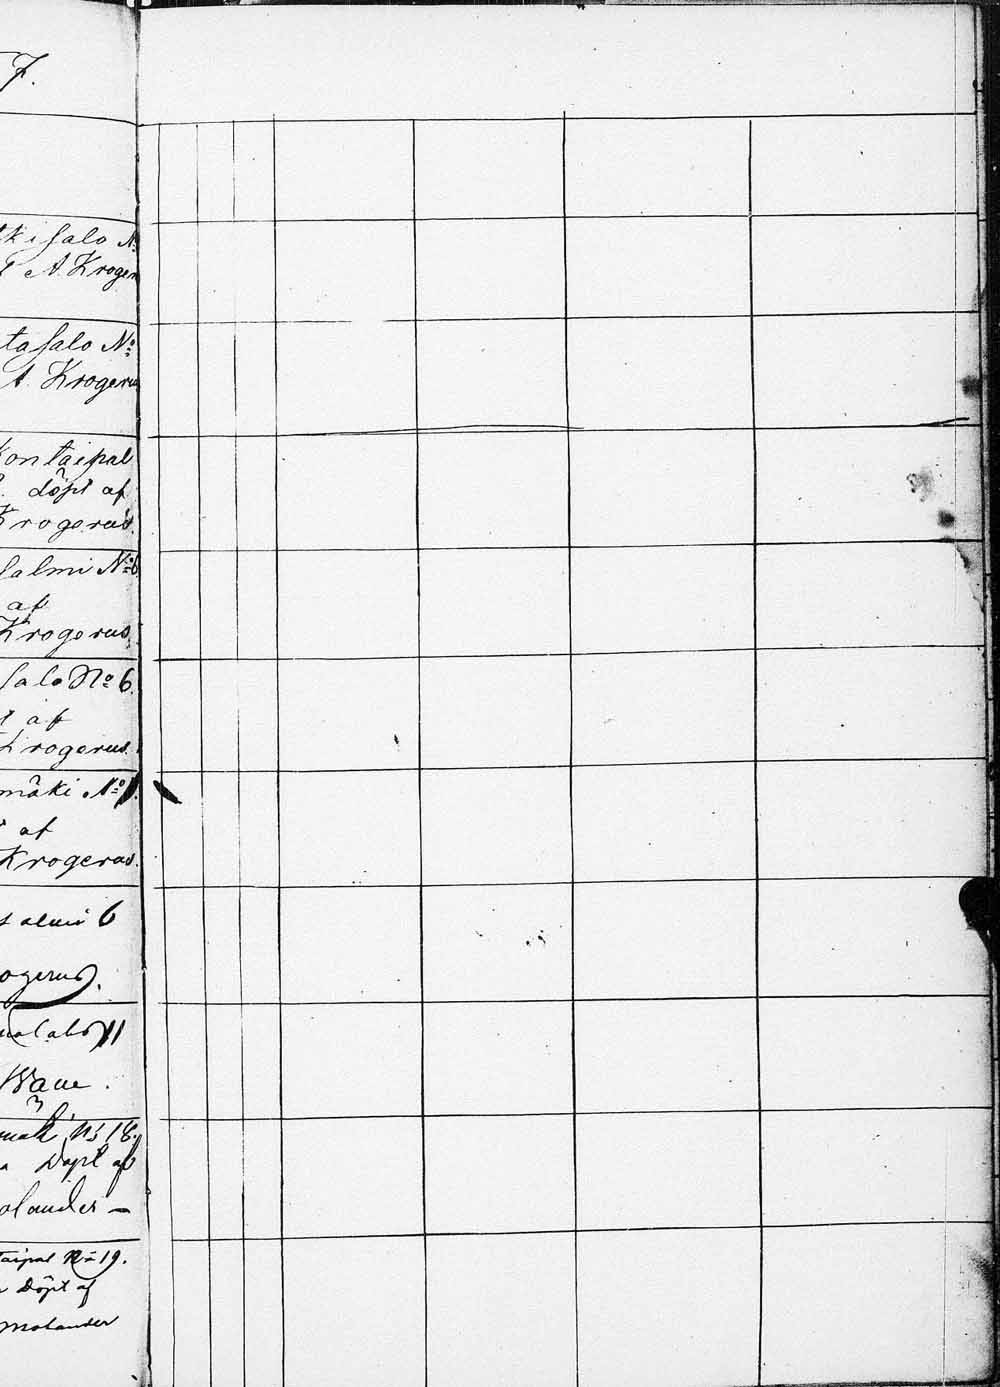 7.
kisalo N:
A. Kroger
tasalo No
A. Krogerus
ontaipal
döpt af
Krogerus.
salmi No 6
af
Krogerus
salo No 6.
af
Krogerus.
mäki No
af
Krogerus.
salmi 6
ogerus.
11
No 18.
Döpt af
olander –
taipal No 19.
Döpt af
Molander